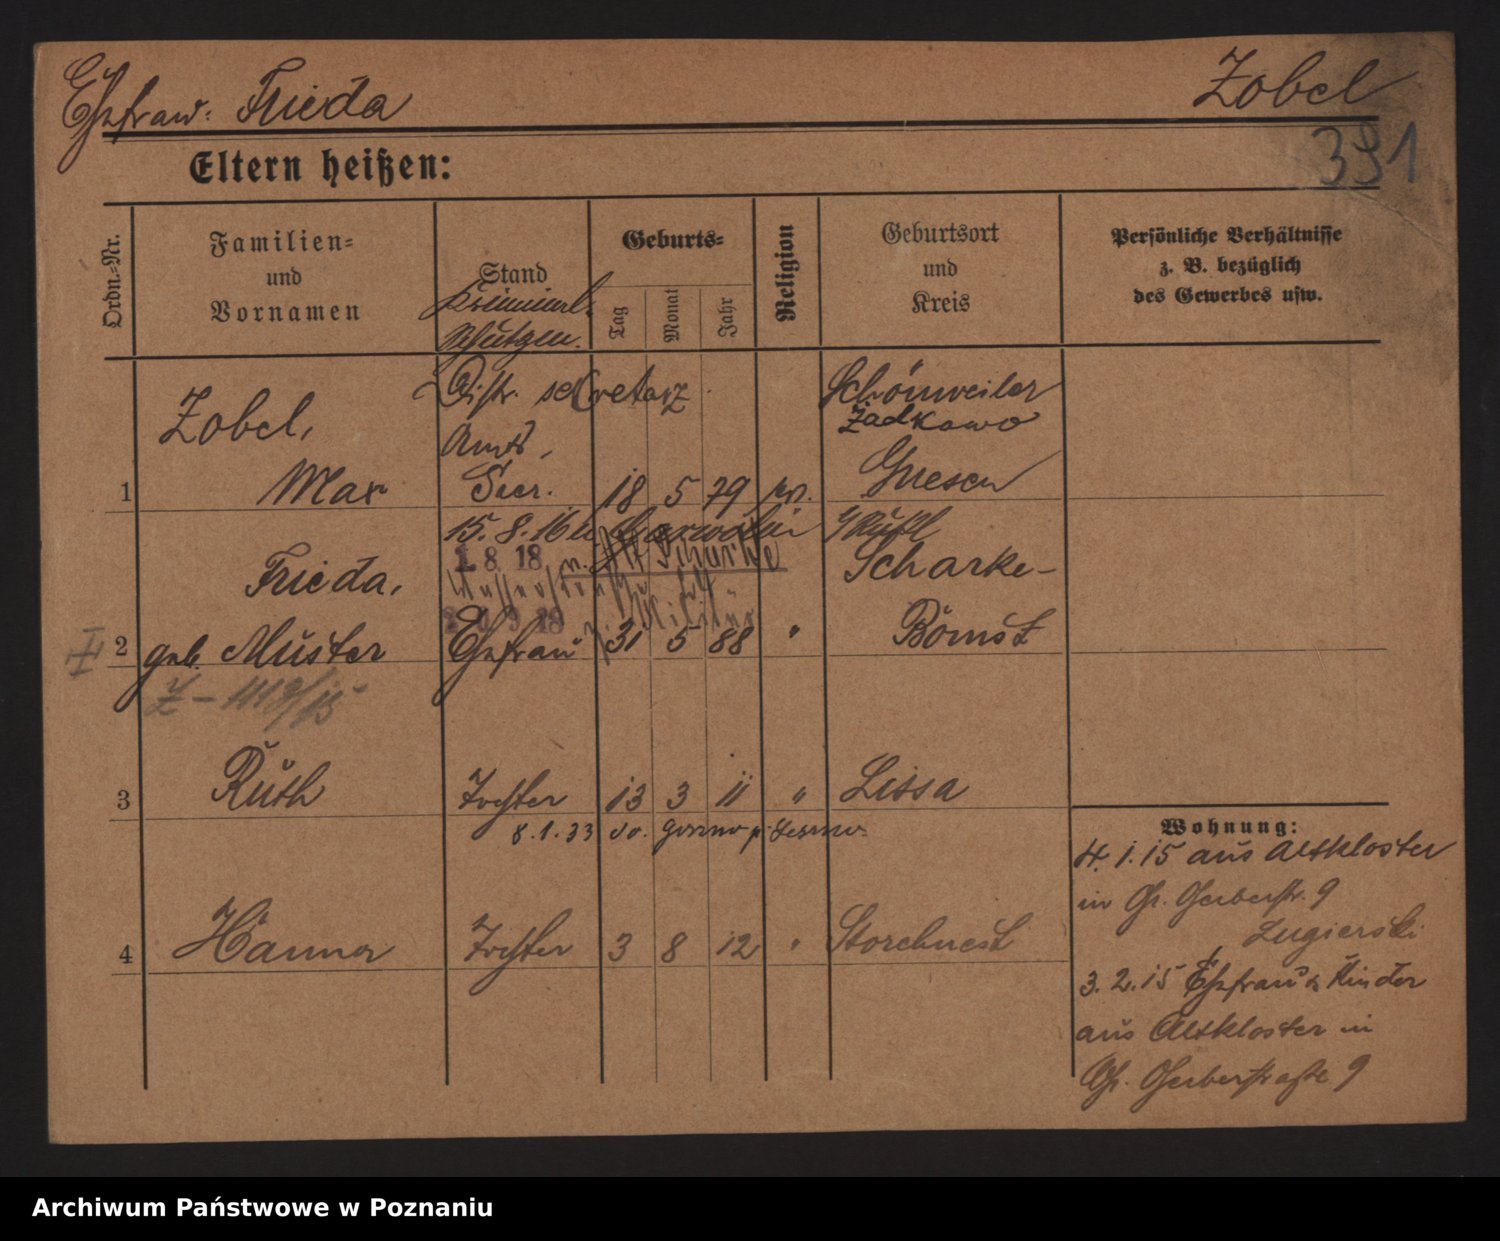 Ehefrau: Frieda
Zobel
391
Eltern heißen:
Ordn.-Nr.
Familien-
und
Vornamen
Stand
Geburts-
Tag
Monat
Jahr
Religion
Geburtsort
und
Kreis
Persönliche Verhältnisse
z. B. bezüglich
des Gewerbes usw.
Kriminal-
Schutzm.
Distr. sekretarz
Schönweiler
Żadkowo
Zobel,
Amts,
1 Max Secr. 18 5 79 ev. Gnesen
15. 8. 16
1 8 18
Frieda, Scharke-
18
2 geb. Muster Ehefrau 31 5 88 " Bomst
3 Ruth Tochter 13 3 11 " Lissa
8.1.33 do. p. Leszno
4 Hanna Tochter 3 8 12 " Storchnest
Wohnung:
4. 1. 15 aus Altkloster
in Gr. Gerberstr. 9
Zugierski
3. 2. 15 Ehefrau & Kinder
aus Altkloster in
Gr. Gerberstraße 9
Archiwum Państwowe w Poznaniu